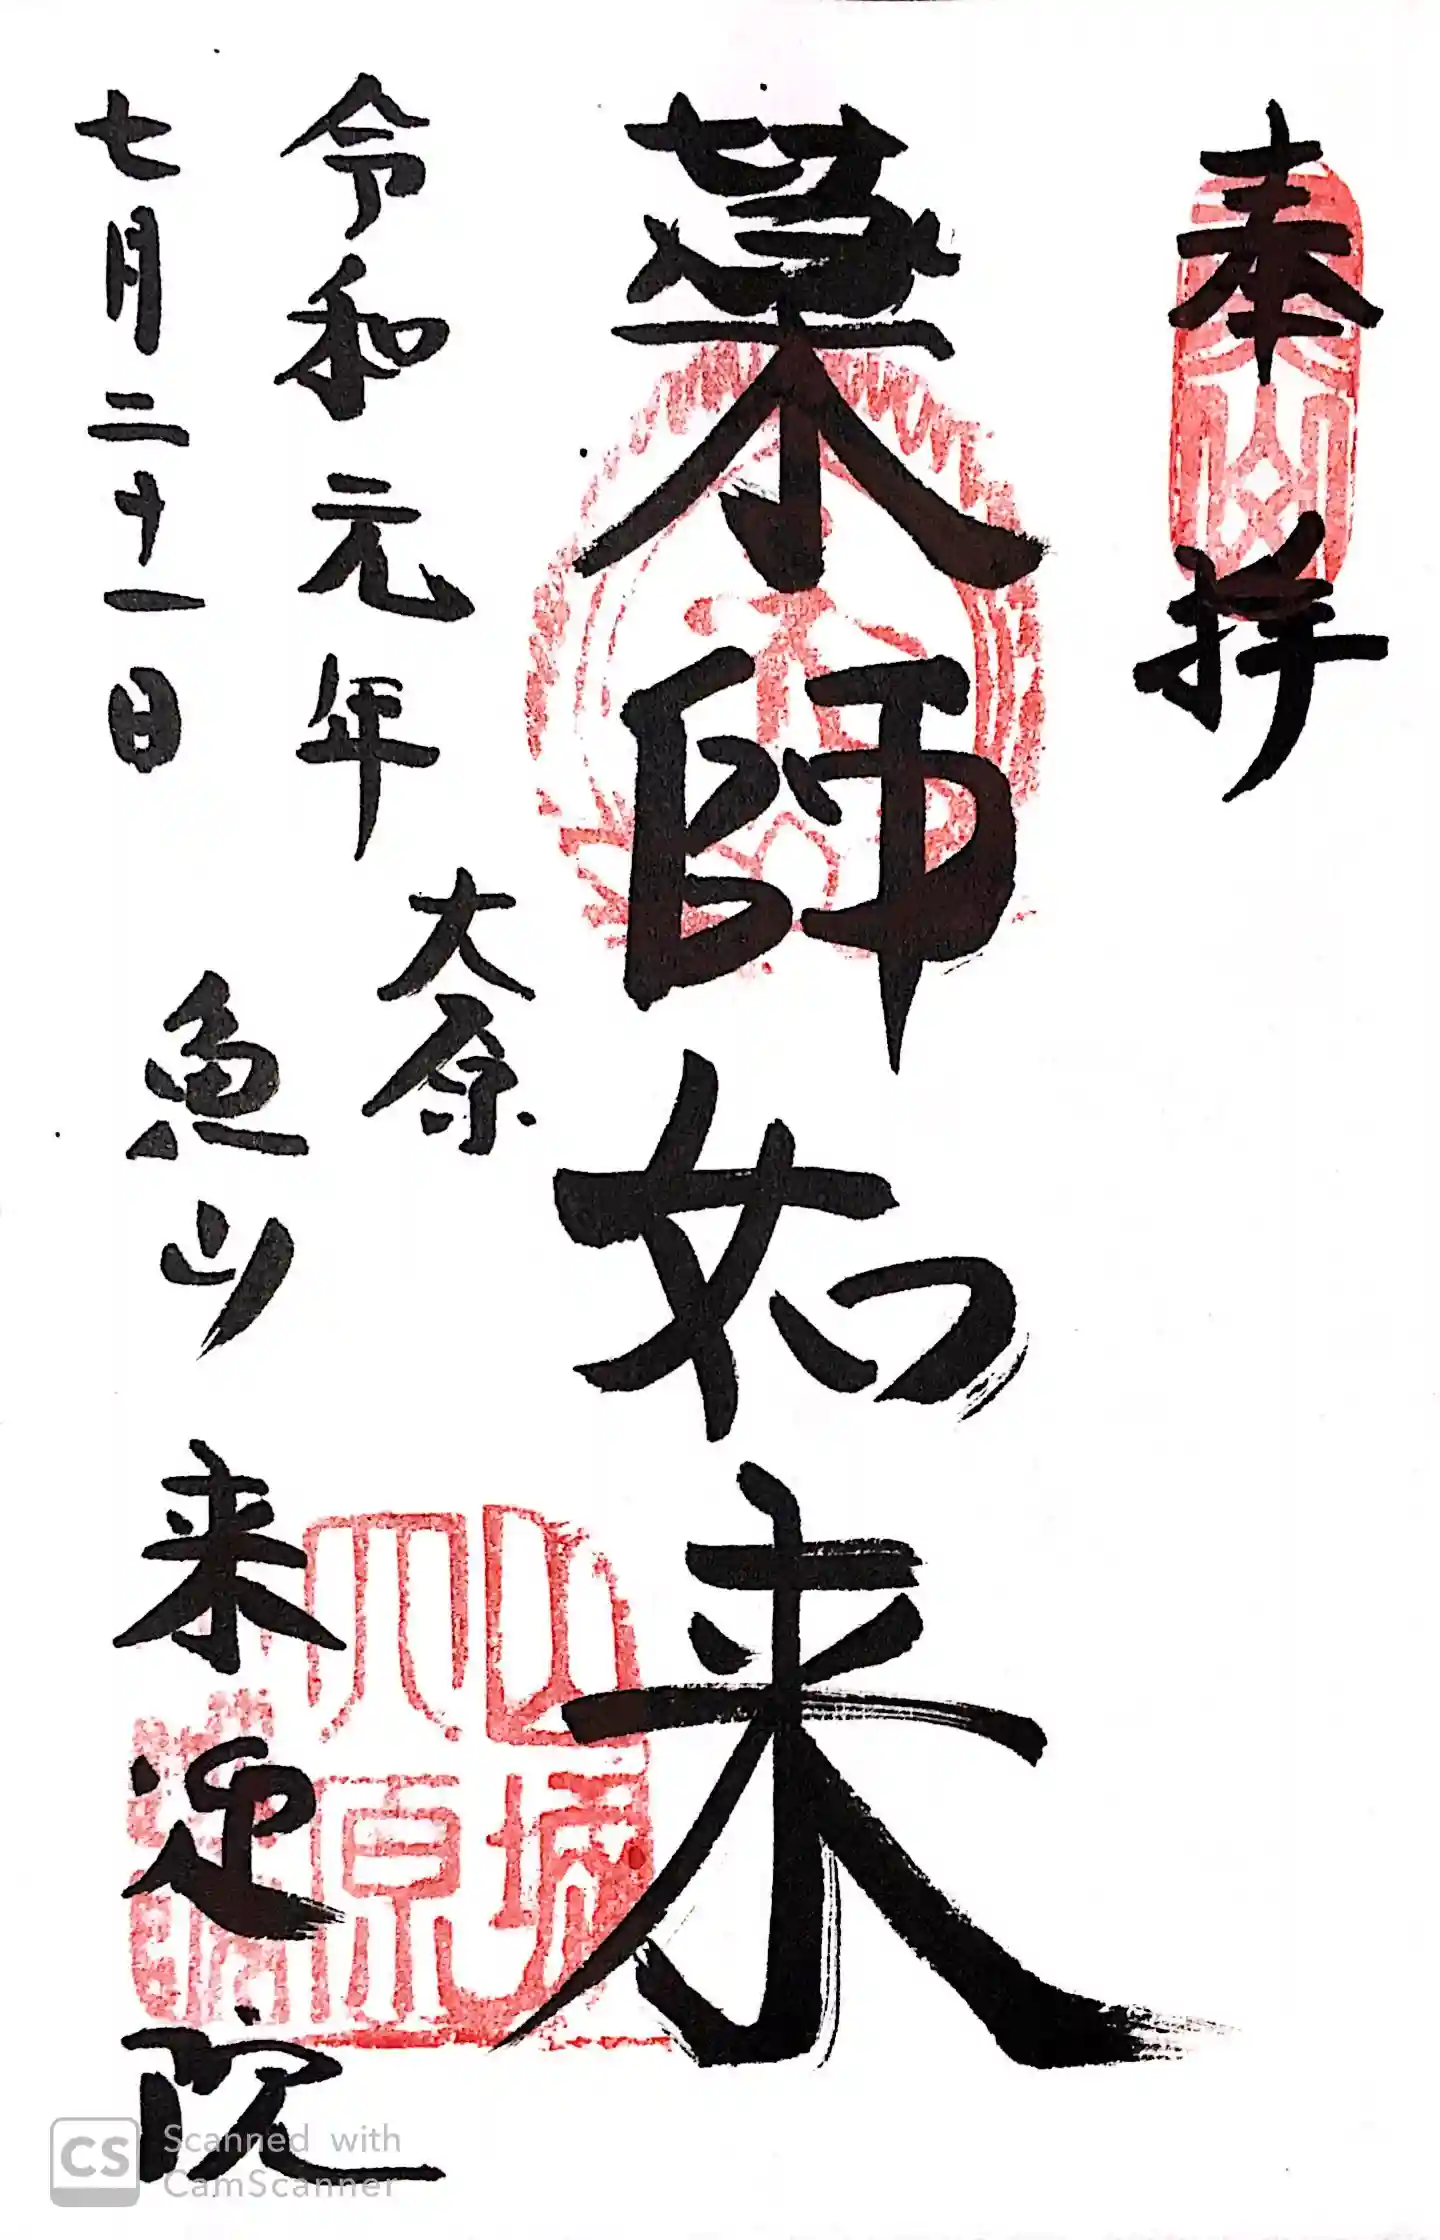 奉拝
薬師如来
大原
令和元年
七月二十一日
魚山
来迎院
山城
大原
Scanned with
CamScanner